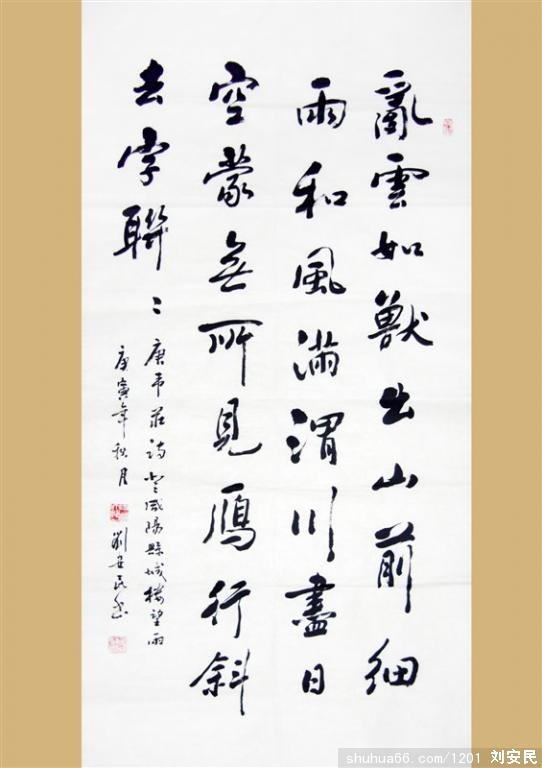 亂雲如獸出山前細
雨和風滿渭川盡日
空蒙無所見雁行斜
去字聯〻
唐韋莊詩登咸陽縣城樓望雨
庚寅年秋月
劉安民書
shuhua66.com/1201 刘安民